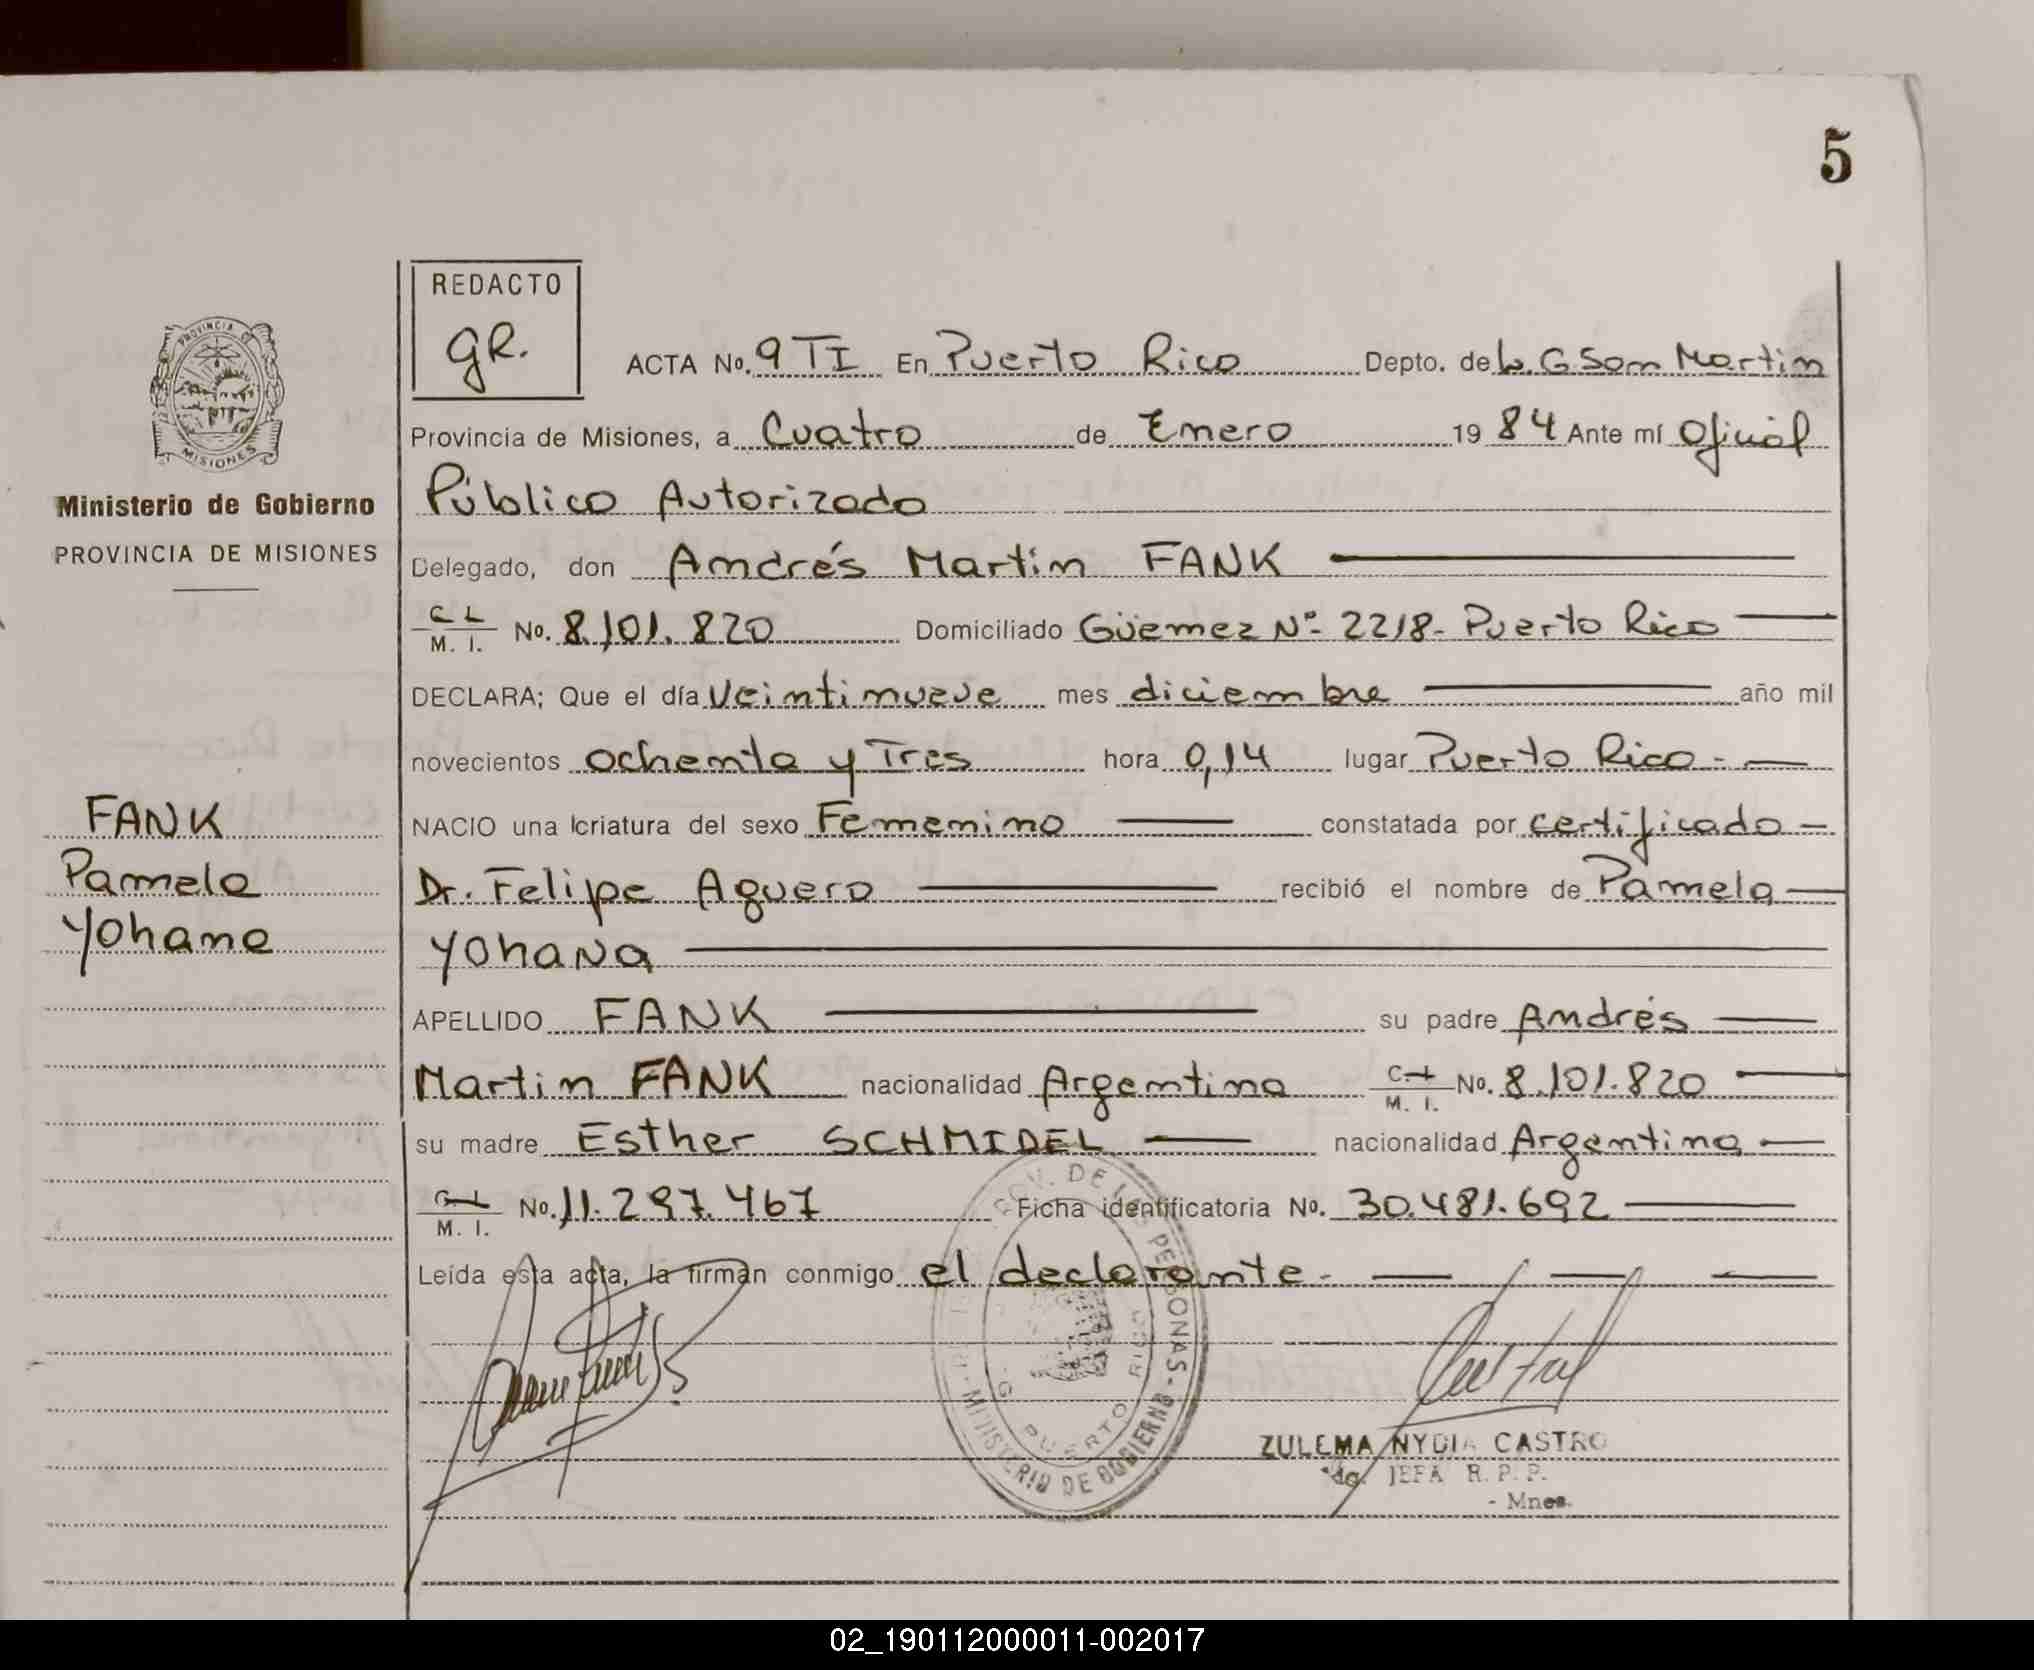 5
REDACTO
gR.
ACTA No. 9 TI En Puerto Rico Depto. de L. G. San Martin
Provincia de Misiones, a Cuatro de Enero 1984 Ante mí Oficial
Público Autorizado
Delegado, don Andrés Martin FANK
C L
M. I. No. 8.101.820 Domiciliado Güemez Nº 2218- Puerto Rico
DECLARA; Que el día Veintinueve mes diciembre año mil
novecientos ochenta y Tres hora 0,14 lugar Puerto Rico -
NACIO una criatura del sexo Femenino constatada por certificado
Dr. Felipe Aguero recibió el nombre de Pamela
Yohana
APELLIDO FANK su padre Andrés
Martin FANK nacionalidad Argentina C. I. M. I. No. 8.101.820
su madre Esther SCHMIDEL nacionalidad Argentina
M. I. No. 11.297.467 Ficha identificatoria No. 30.481.692
Leída esta acta, la firman conmigo el declarante -
PROVINCIA
MISIONES
Ministerio de Gobierno
PROVINCIA DE MISIONES
FANK
Pamela
Yohana
DE LAS PERSONAS - MINISTERIO DE GOBIERNO
PUERTO RICO
ZULEMA NYDIA CASTRO
JEFA R. P. P.
- Mnes.
02_190112000011-002017